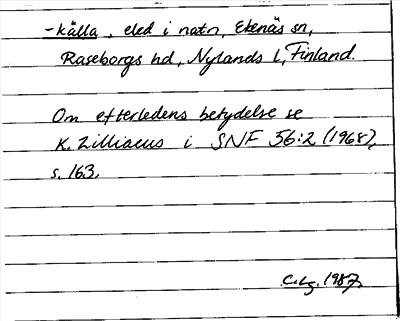 -källa, eled i natn, Ekenäs sn,
Raseborgs hd, Nylands l, Finland.
Om efterledens betydelse se
K. Zilliacus i SNF 56:2 (1968),
s. 163.
C.Lg. 1987.